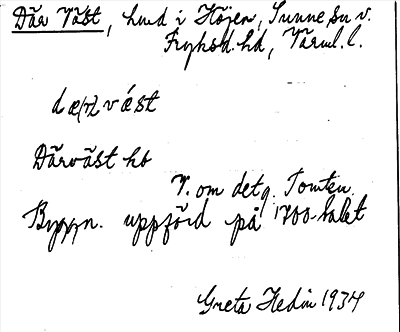 Där Väst, hmd i Höjen, Sunne sn v.
Fryksd. hd, Värml. l.
dæ(r) vást
Därväst hb
V. om det g. Tomten.
Byggn. uppförd på 1700-talet
Greta Hedin 1934